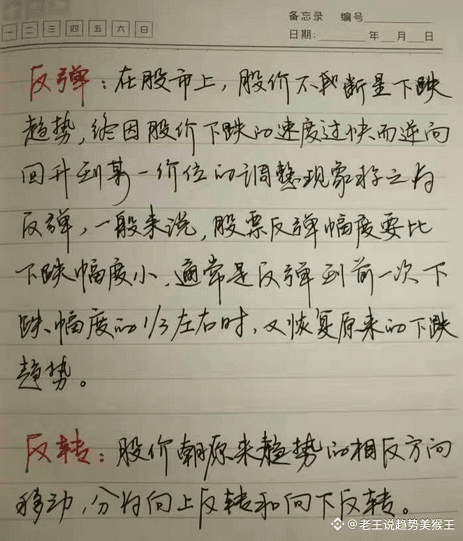 备忘录 编号
一 二 三 四 五 六 日
日期: 年 月 日
反弹：在股市上，股价不断呈下跌
趋势，终因股价下跌的速度过快而逆向
回升到某一价位的调整现象称之为
反弹，一般来说，股票反弹幅度要比
下跌幅度小，通常是反弹到前一次下
跌幅度的1/3左右时，又恢复原来的下跌
趋势。
反转：股价朝原来趋势的相反方向
移动，分为向上反转和向下反转。
@老王说趋势美猴王